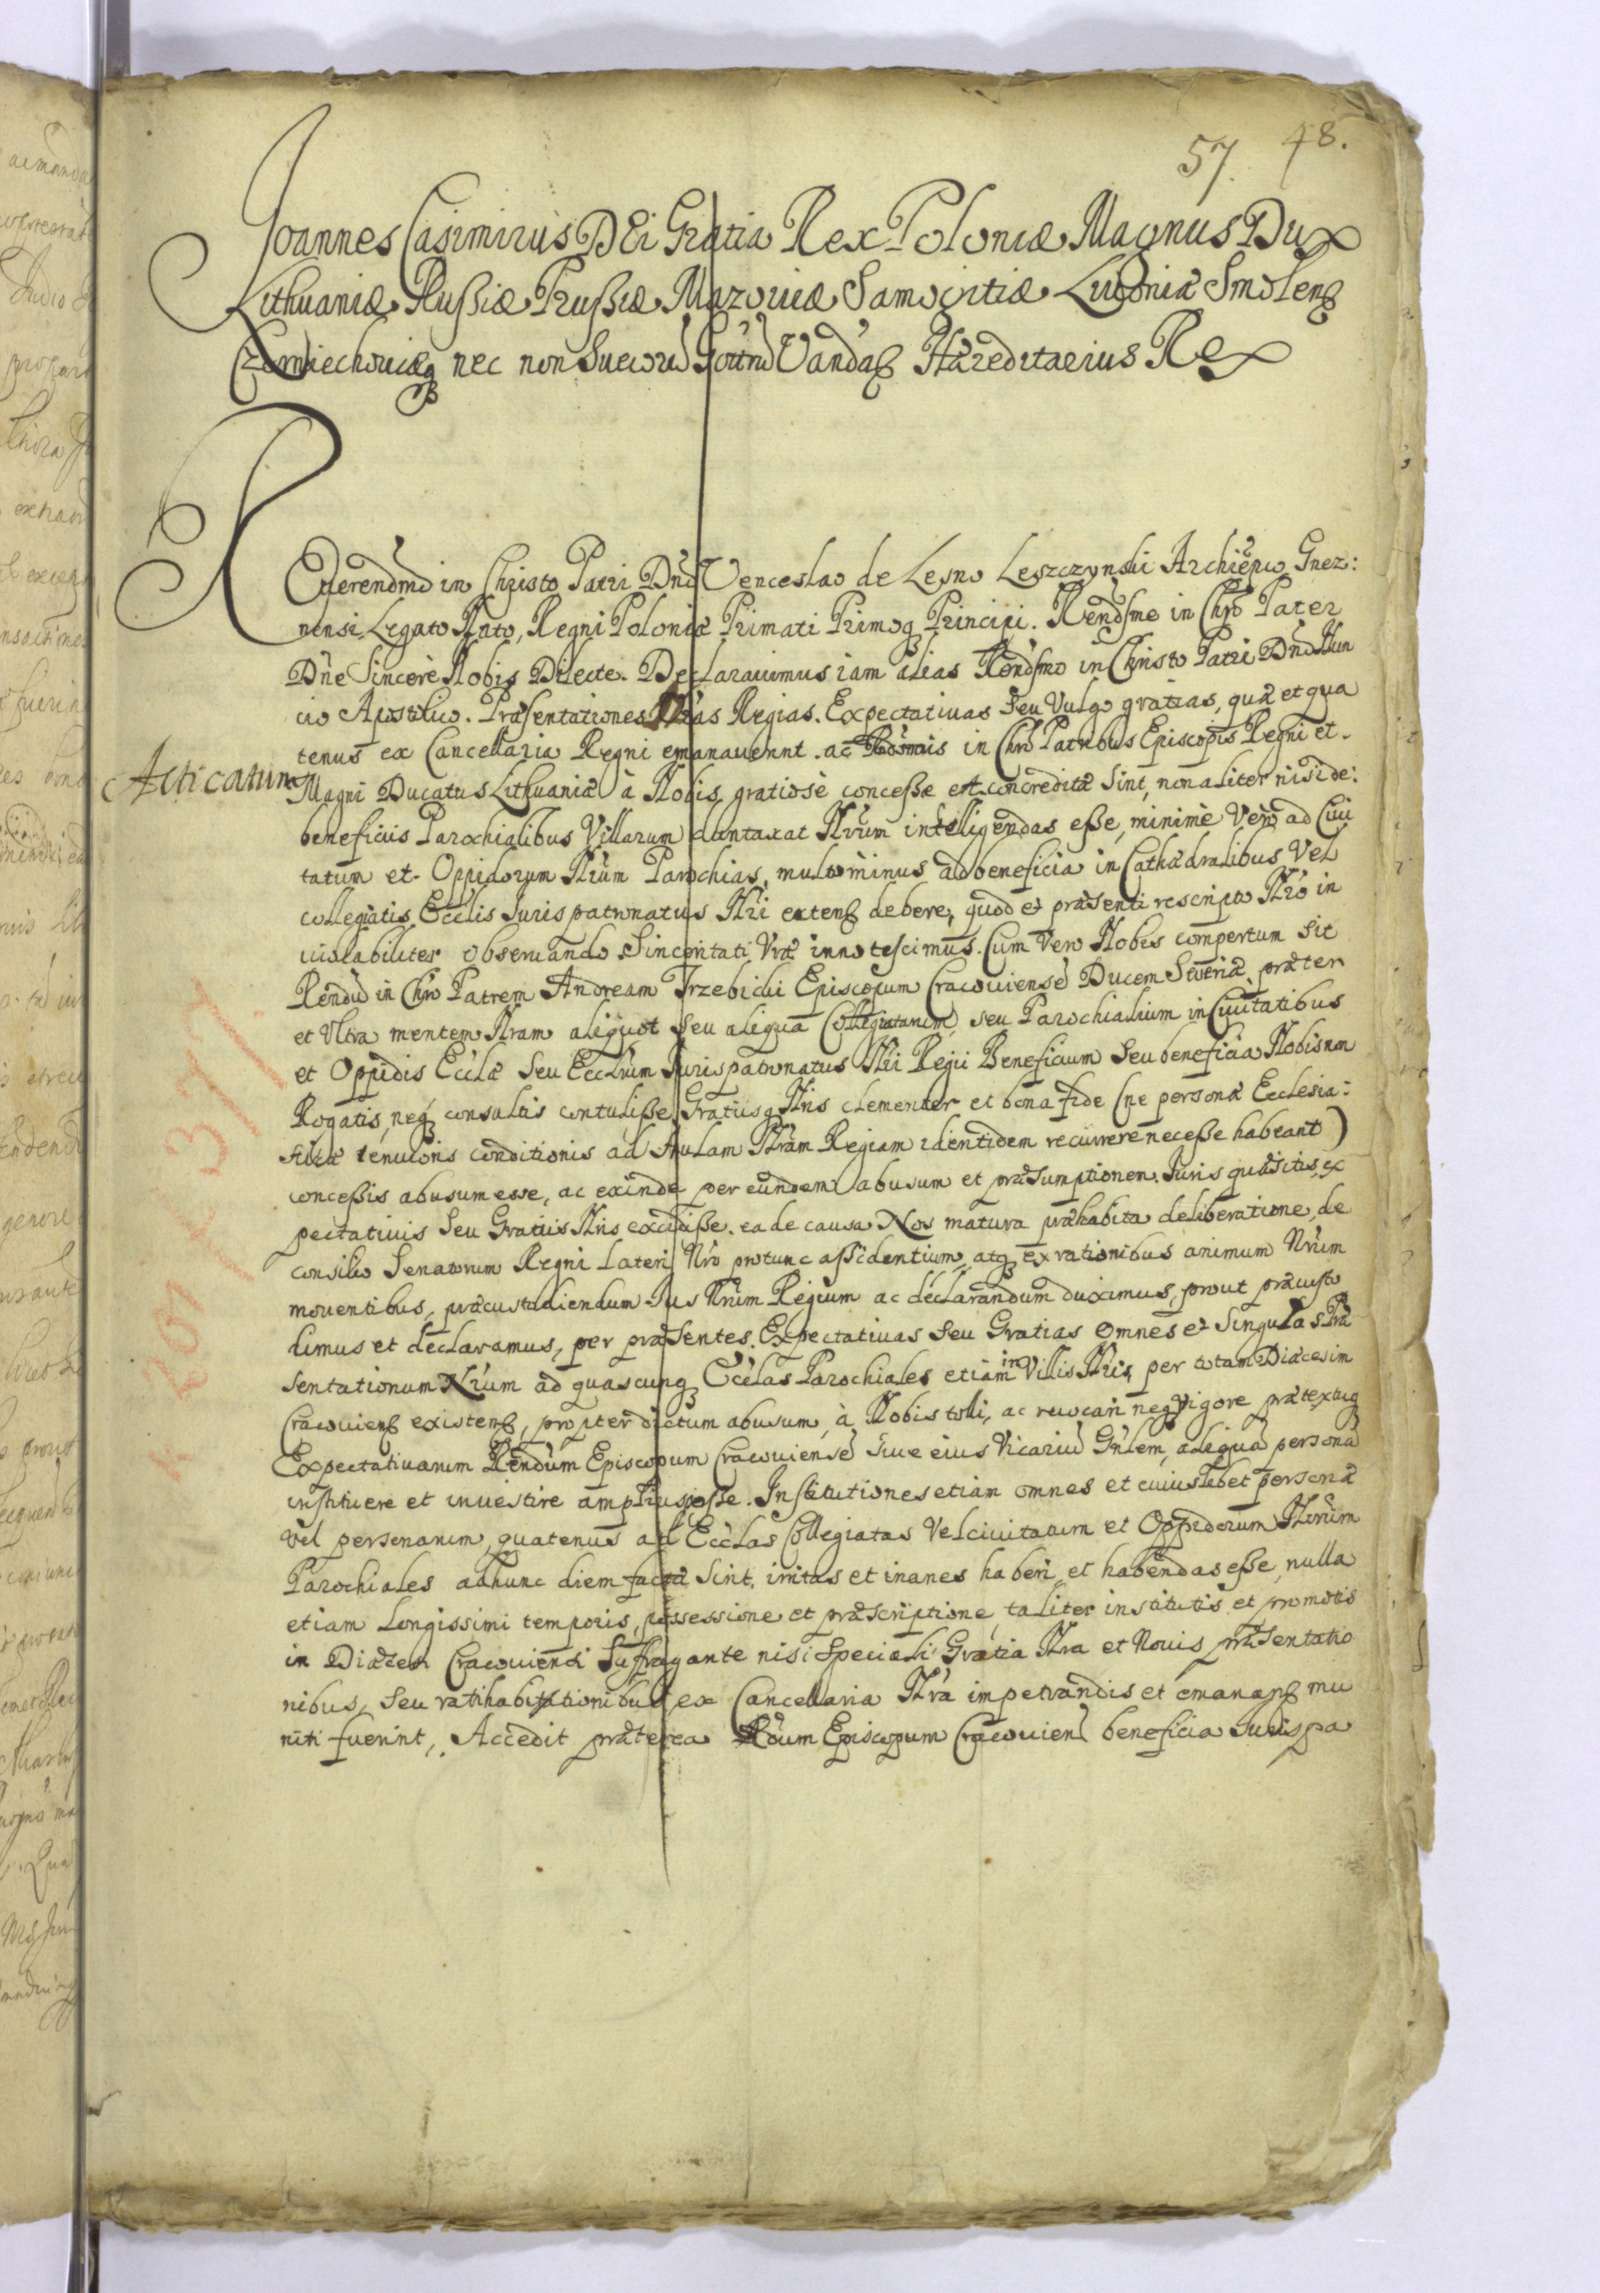 57. 48.
Joannes Casimirus DEi Gratia Rex Poloniæ Magnus Dux
Lithuaniæ Russiæ Prussiæ Mazouiæ Samogitiæ Liuoniæ Smolen
Czerniechouiæq nec non Sueorũ Gottrũ Vandaꝫ Hæreditarius Rex
Reuerendmo in Christo Patri Dnõ Venceslao de Lesno Leszczynski Archiepo Gnez:
nensi, Legato Nato, Regni Poloniæ Primati Primoq Principi. Rendsme in Chrõ Pater
Dñe Sincerè Nobis Dilecte. Declarauimus iam alias Rendsmo in Christo Patri Dnõ Nun
cio Apostolico. Præsentationes Nras Regias. Expectatiuas seu Vulgo gratias, quæ et qua
tenus ex Cancellaria Regni emanauerint. ac in Chrõ Patribus Episcopis Regni et
Acticatum
Magni Ducatus Lithuaniæ à Nobis gratiosè concessæ et concreditæ sint, non aliter nisi de:
beneficiis Parochialibus Villarum duntaxat Nrũm intelligendas esse, minimè Verò ad Ciui
tatum et Oppidorum Nrũm Parochias, multo minus ad beneficia in Cathædralibus Vel
collegiatis Ecclis Juris patronatus Nri extenꝫ debere, quod et præsenti rescripto Nrõ in
uiolabiliter obseruando Sinceritati Vræ innotescimus. Cum Vero Nobis compertum sit
Rendũ in Chrõ Patrem Andream Trzebicki Episcopum Cracouiensẽ Ducem Seueriæ præter
et Vltra mentem Nram aliquot seu aliqua Collegiatarum seu Parochialium in Ciuitatibus
et Oppidis Ecclæ seu Ecclrũm Jurispatronatus Nri Regii Beneficium seu beneficia Nobis non
Rogatis, neq consultis contulisse, Gratiisq Nris clementer et bona fide (ne personæ Ecclesia:
sticæ tenuioris conditionis ad Aulam Nrãm Regiam identidem recurrere necesse habeant)
concessis abusum esse, ac exinde per eundem abusum et præsumptionem Juris quæsitis, ex
pectatiuis seu Gratiis Nris excidisse. ea de causa Nos matura præhabita deliberatione, de
consilio Senatorum Regni Lateri Nrõ protunc assidentium, atq ex rationibus animum Nrũm
mouentibus, præcustodiendum Jus Nrũm Regium ac declarandum duximus, prout præcusto
dimus et declaramus, per præsentes. Expectatiuas seu Gratias omnes et Singulas Præ
sentationum Nrũm ad quascunq Ecclas Parochiales etiam in Villis Nris, per totam Diæcesim
Cracouienꝫ existenꝫ, propter dictum abusum, à Nobis tolli, ac reuocari neq Vigore prætextuq
Expectatiuarum Rendũm Episcopum Cracouiensẽ siue eius Vicariũ Gñlem, aliquã personã
instituere et inuestire amplius posse. Institutiones etiam omnes et cuiuslibet personæ
vel personarum, quatenus ad Ecclas Collegiatas Vel ciuitatum et Oppidorum Nrorũm
Parochiales adhunc diem factæ sint, irritas et inanes haberi et habendas esse, nulla
etiam longissimi temporis, possessione et præscriptione, taliter institutis et promotis
in Diæcesi Cracouiensi Suffragante nisi Speciali Gratia Nra et Nouis præsentatio
nibus, seu ratihabitationibus ex Cancellaria Nrã impetrandis et emananꝫ mu
niti fuerint, Accedit præterea Rdum Episcopum Cracouienꝫ beneficia Jurispa